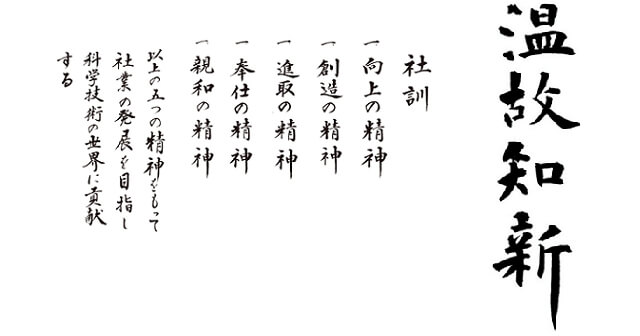 温故知新
社訓
一向上の精神
一創造の精神
一進取の精神
一奉仕の精神
一親和の精神
以上の五つの精神をもって
社業の発展を目指し
科学技術の世界に貢献
する